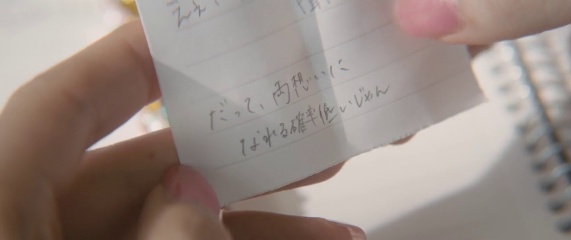 だって、両想いに
なれる確率低いじゃん